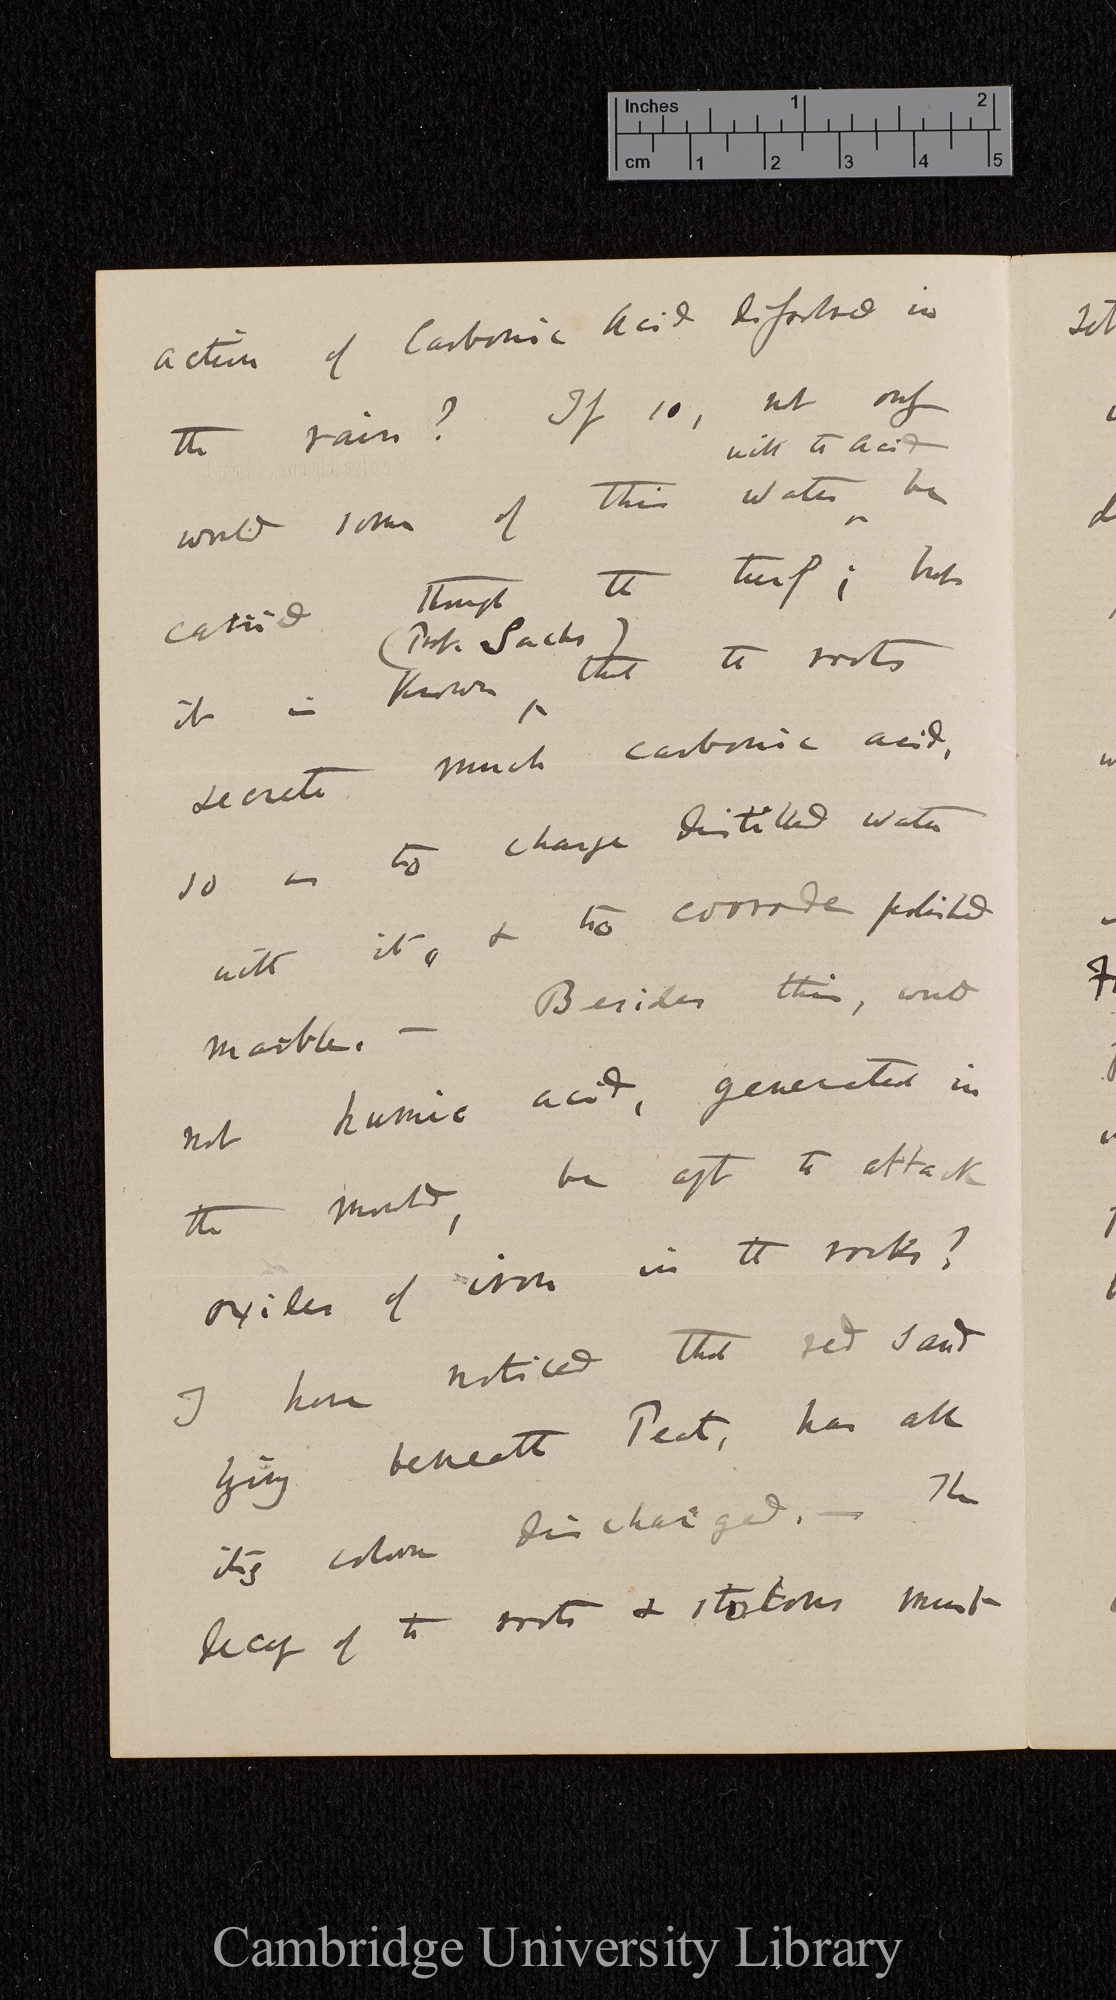 Inches 1 2
cm 1 2 3 4 5
action of Carbonic Acid dissolved in
the rain? If so, not only
with the acid
would some of this water ^ be
carried through the turf; but
(Prof. Sachs)
it is known ^ that the roots
secrete much carbonic acid,
so as to charge distilled water
with it, & to corrode polished
marble. —  Besides this, wd
not humic acid, generated in
the mould, be apt to attack
oxides of iron in the rocks?
I have noticed that red sand
lying beneath Peat, has all
its colour discharged. — The
decay of the roots & stolons must
Cambridge University Library